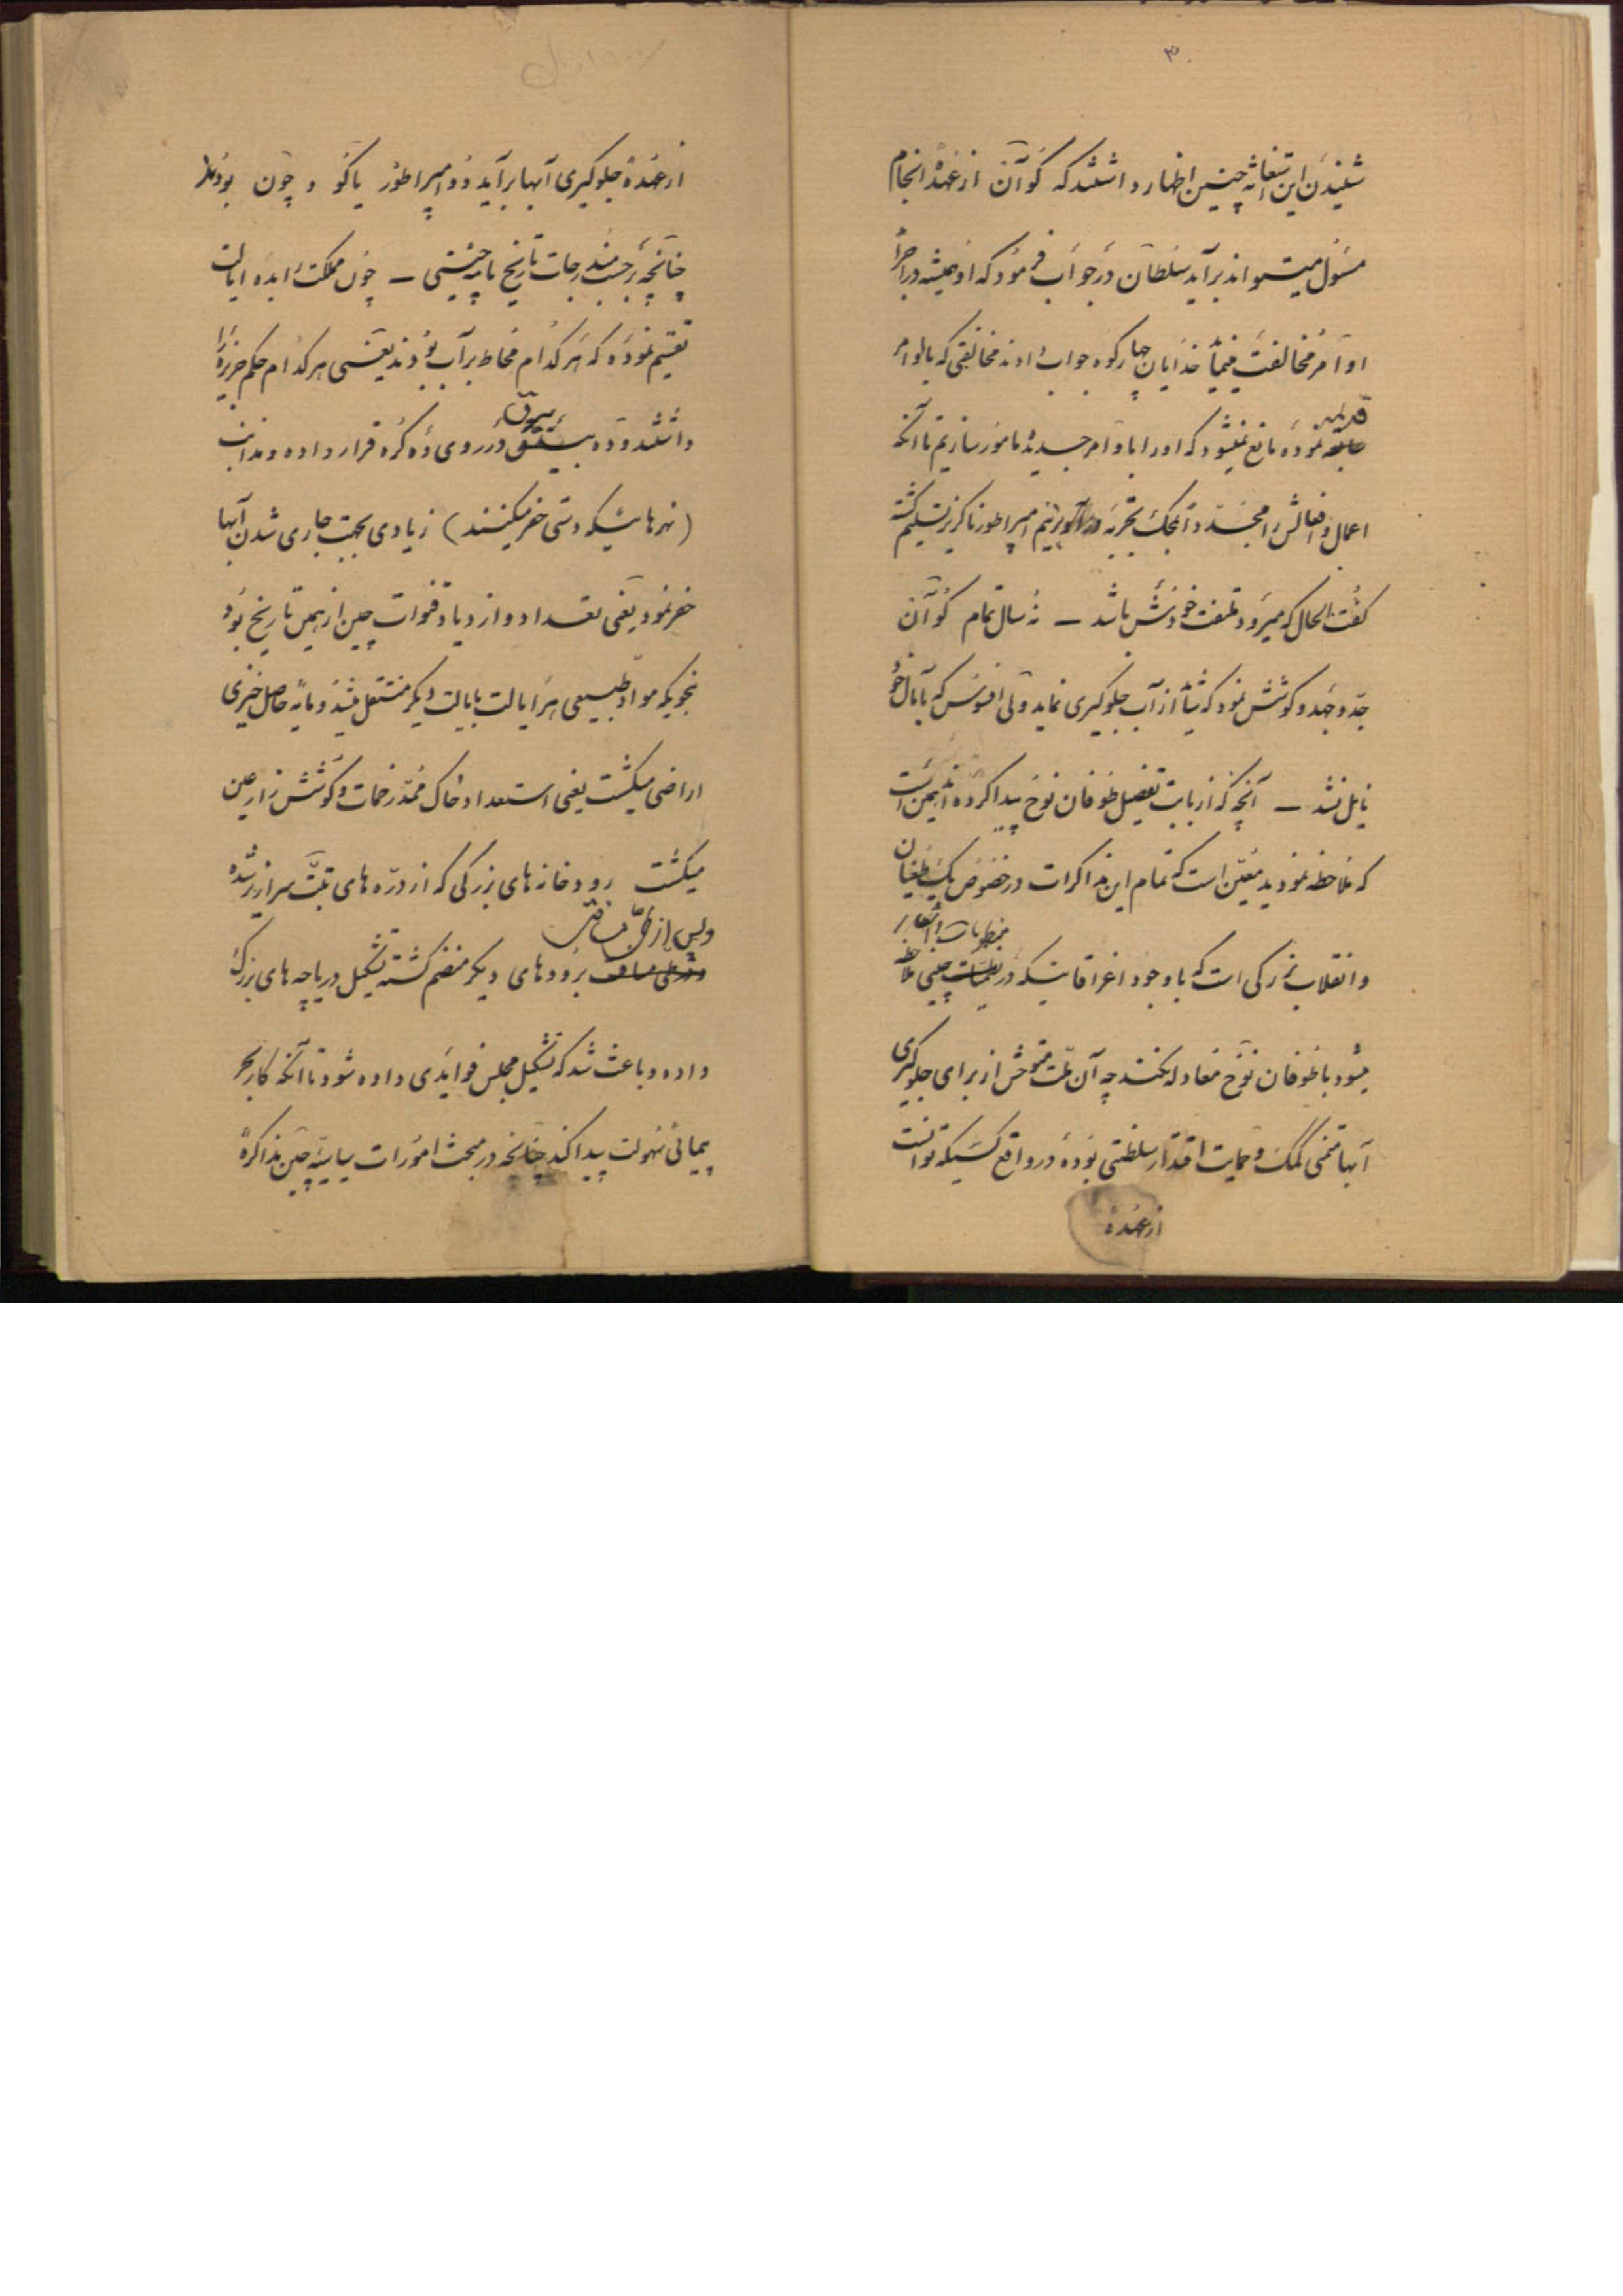 ۳
شنیدن این استغاثه چنین اظهار داشتند که کوآن از عهدهٔ انجام
مسئول میتواند برآید سلطان در جواب فرمود که او همیشه در اجرای
اوامر مخالفت مینماید خدایان چهار کوه جواب دادند مخالفتی که با اوامر
قدیمه
نموده مانع نمیشود که او را با اوامر جدیده مامور سازیم تا آنکه
اعمال و افعالش را مجدداً بمحک تجربه درآوریم امپراطور ناگزیر تسلیم گشته
گفت الحال که میرود ملتفت خودش باشد ــ نه سال تمام کوآن
جد و جهد و کوشش نمود که شاید از آب جلوگیری نماید ولی افسوس که بآمال خود
نایل نشد ــ آنچه که از بابت تفصیل طوفان نوح پیدا کرده‌اند همین است
که ملاحظه نمودید معین است که تمام این مذاکرات در خصوص یک طغیان
منظومات و اشعار
و انقلاب بزرگی است که با وجود اغراقاتیکه در چینی ملاحظه
میشود با طوفان نوح معادله نکند چه آن ملت متوحش از برای جلوگیری
آبها متمنی کمک و حمایت اقتدار سلطنتی بوده در واقع کسیکه توانست
از عهدهٔ
از عهدهٔ جلوگیری آبها برآید دو امپراطور یاکو و چون بودند
چنانچه برحسب مندرجات تاریخ نامه چینی ــ چون مملکت را بده ایالت
تقسیم نموده که هر کدام محاط بر آب بودند یعنی هر کدام حکم جزیره را
داشتند و ده بیرق در روی ده کوه قرار داده و مذانب
(نهرهائیکه دستی حفر میکنند) زیادی بجهت جاری شدن آبها
حفر نمود یعنی تعداد و ازدیاد قنوات چین از همین تاریخ بود
بنحویکه مواد طبیعی هر ایالت بایالت دیگر منتقل میشد و مایه حاصل خیزی
اراضی میگشت یعنی استعداد خاک ممد زحمات و کوشش زارعین
میگشت رودخانه‌های بزرگی که از دره‌های تبت سرازیر شده
و پس از طی مسافتی
برودهای دیگر منضم گشته تشکیل دریاچه‌های بزرگ
داده و باعث شد که تشکیل مجلس فوایدی داده شود تا آنکه کار بحر
پیمائی سهولت پیدا کند چنانچه در مبحث امورات سیاسیه چین مذاکره